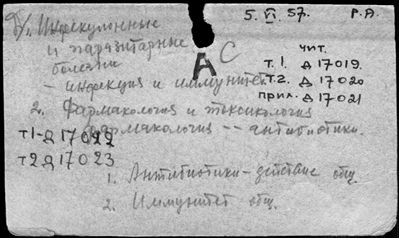 5. VI. 57. Р.А.
1. Инфекционные
и паразитарные
болезни
- инфекция и иммунитет
А С
чит.
т.1. Д 17019.
т.2. Д 17020
прил. Д 17021
2. Фармакология и токсикология
фармакология -- антибиотики.
т1-Д 17022
т2 Д 17023
1. Антибиотики - действие общ.
2. Иммунитет общ.